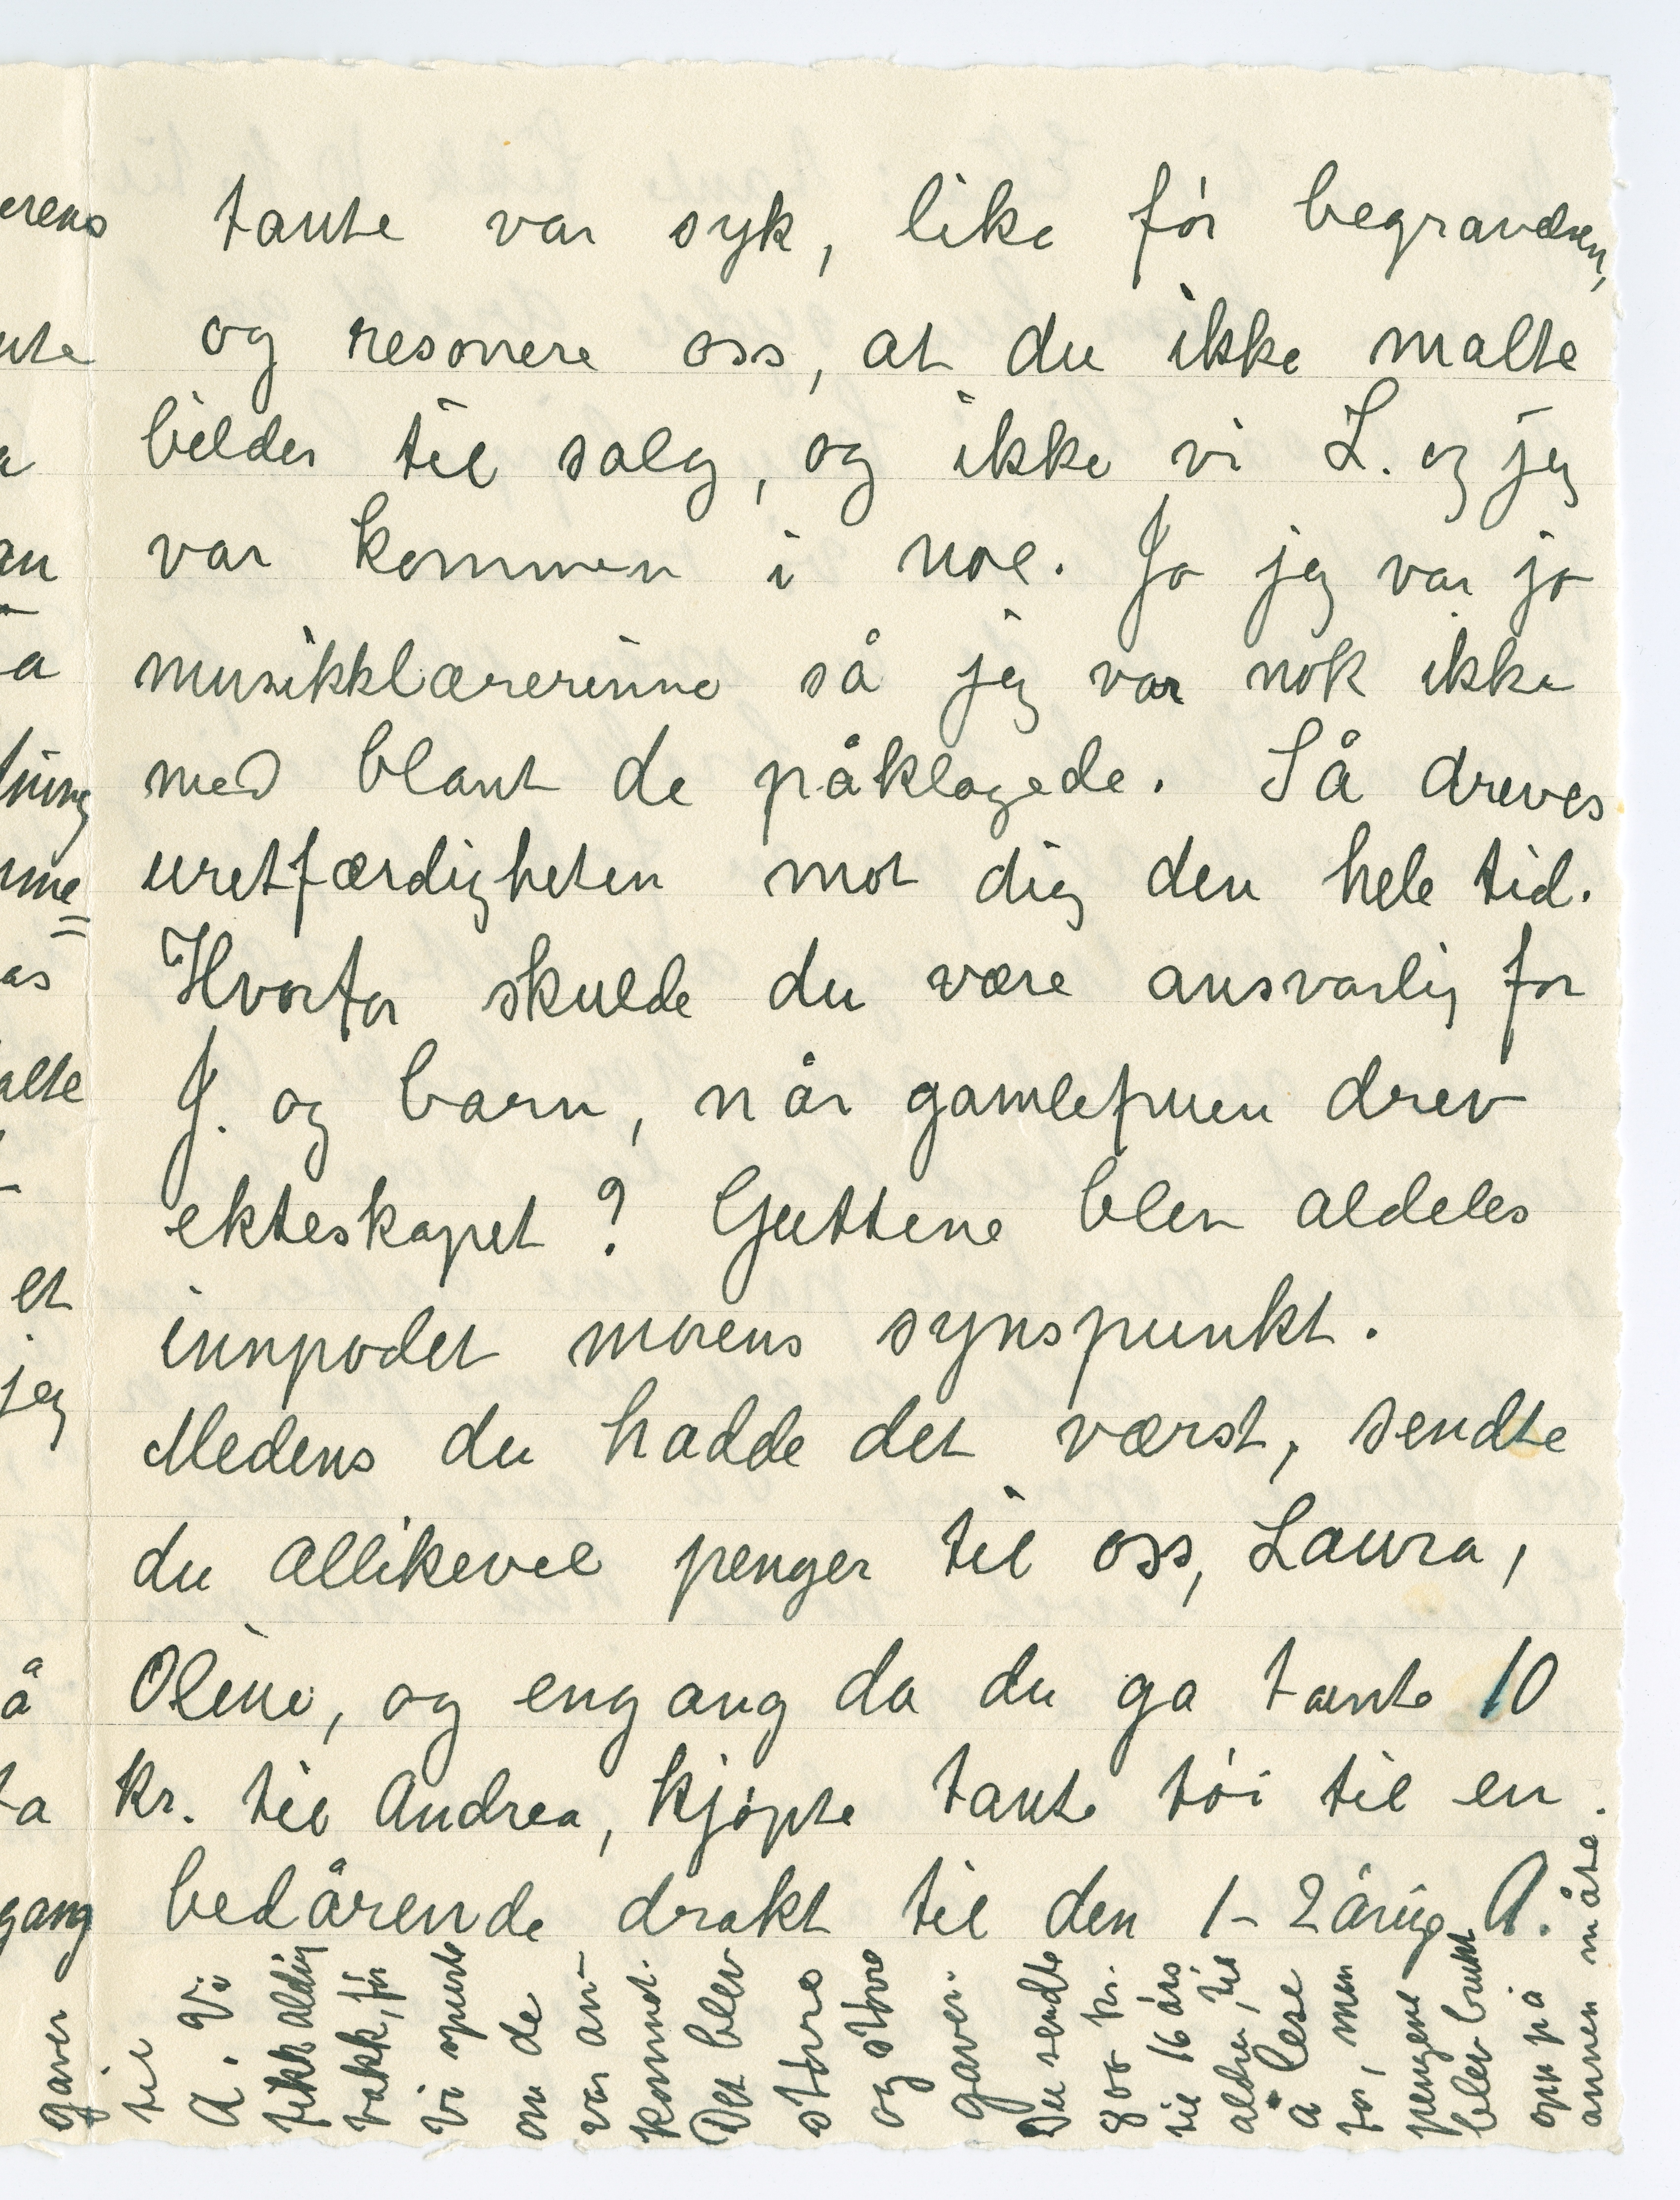 tante var syk, like før begravelsen,
og resonere oss, at du ikke malte
bilder til salg, og ikke vi L. og jeg
var kommen i noe. Ja jeg var jo
musikklærerinne så jeg var nok ikke
med blant de påklagede. Så dreves
uretfærdigheten mot dig den hele tid.
Hvorfor skulde du være ansvarlig for
J. og barn, når gamlefruen drev
ekteskapet? Guttene blev aldeles
innpodet morens synspunkt.
Medens du hadde det værst, sendte
du allikevel penger til oss, Laura,
Oline, og engang da du ga tante 10
kr. til Andrea, kjøpte tante tøi til en
bedårende drakt til den 1-2årige A.
gaver
til
A. Vi
fikk aldrig
takk, før
vi spurte
om de
var an-
kommet.
Det blev
større
og større
gaver.
Du sendte
800 kr.
til 16 års
alder, til
å lese
for, men
pengene
blev brukt
opp på
annen måte.
erens
nte
a
an
a
ning
mme
as
alte
et
jeg
å
ta
gang